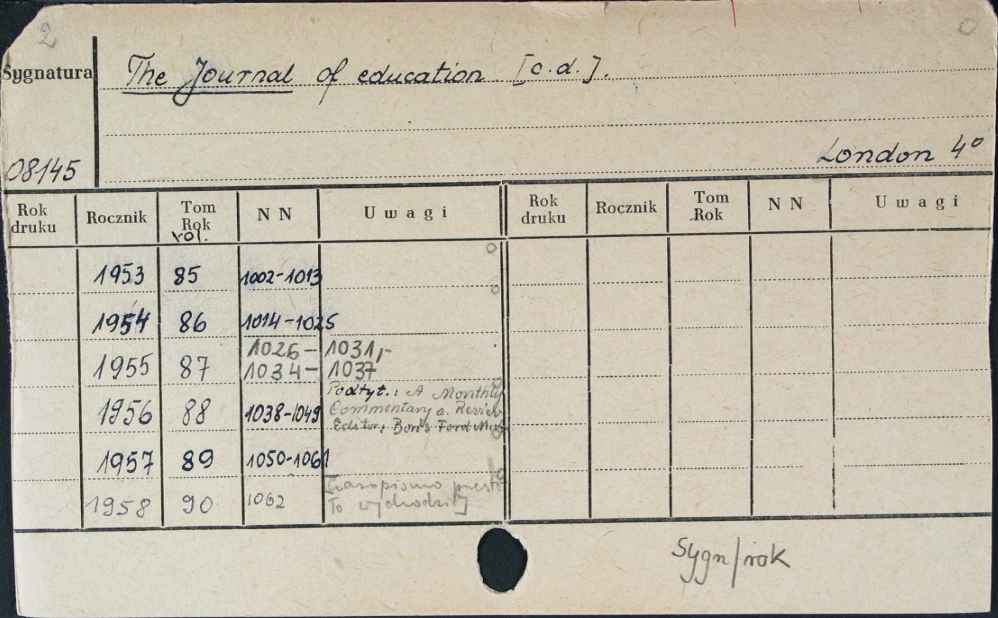 2
Sygnatura
The Journal of education [c.d.].
08145
London 4°
Rok druku Rocznik Tom Rok vol. N N Uwagi Rok druku Rocznik Tom Rok N N Uwagi
1953 85 1002-1013
1954 86 1014-1025
1955 87 1026-1031,-
1034-1037
1956 88 1038-1049 Podtyt.: A Monthly
Commentary a. Review
Editor: Boris Ford
1957 89 1050-1061
1958 90 1062 Czasopismo
wychodzić]
Sygn/rok